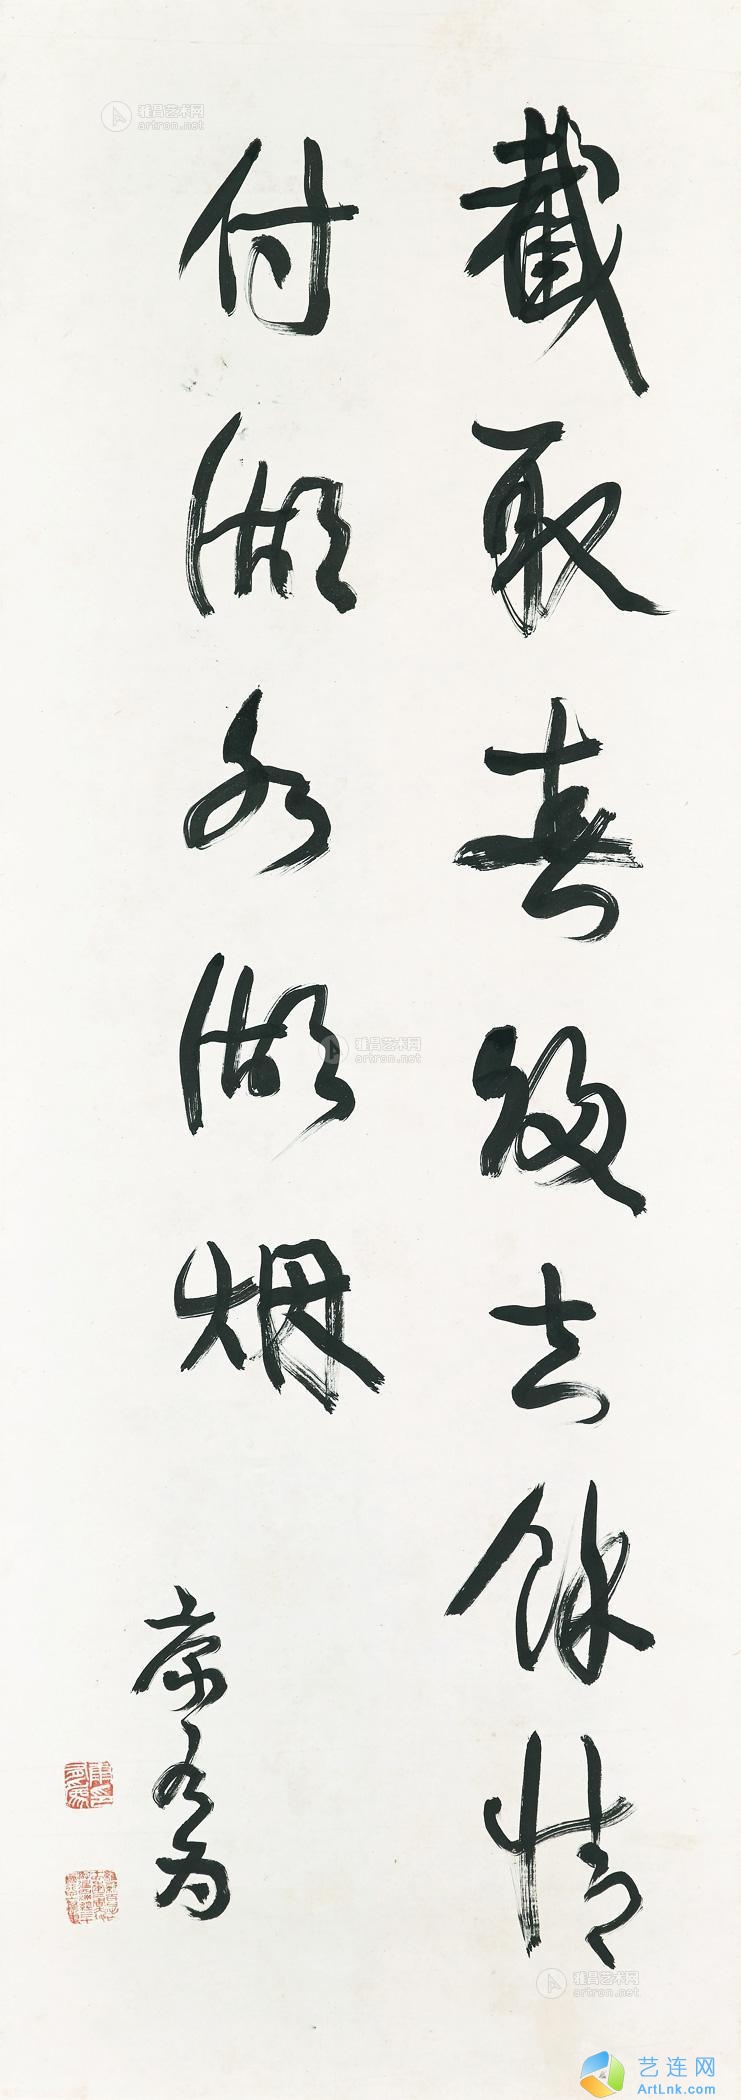 載取春歸去餘情
付湖水湖烟
康有為
康有為印
雅昌艺术网
artron.net
雅昌艺术网
artron.net
雅昌艺术网
artron.net
艺连网
ArtLnk.com